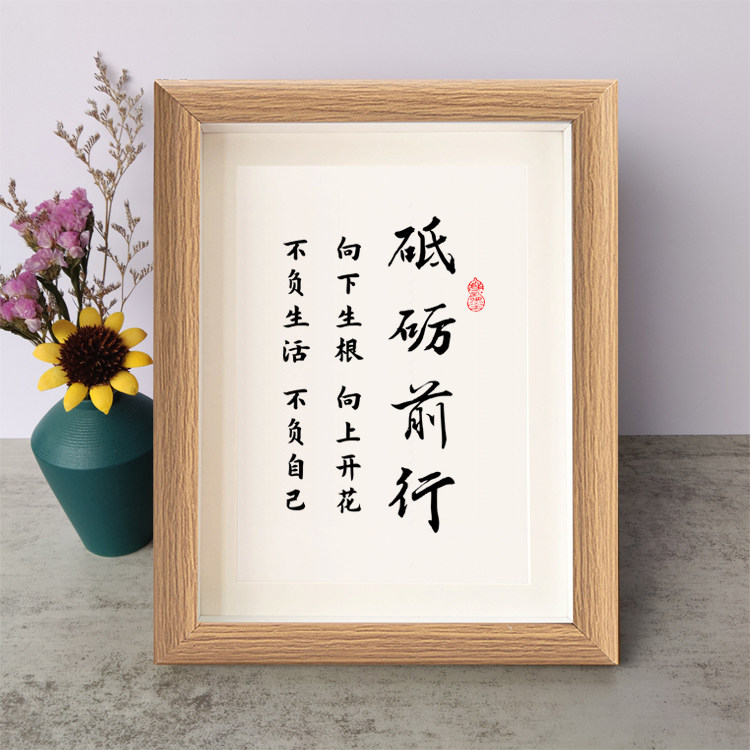 砥砺前行
向下生根 向上开花
不负生活 不负自己